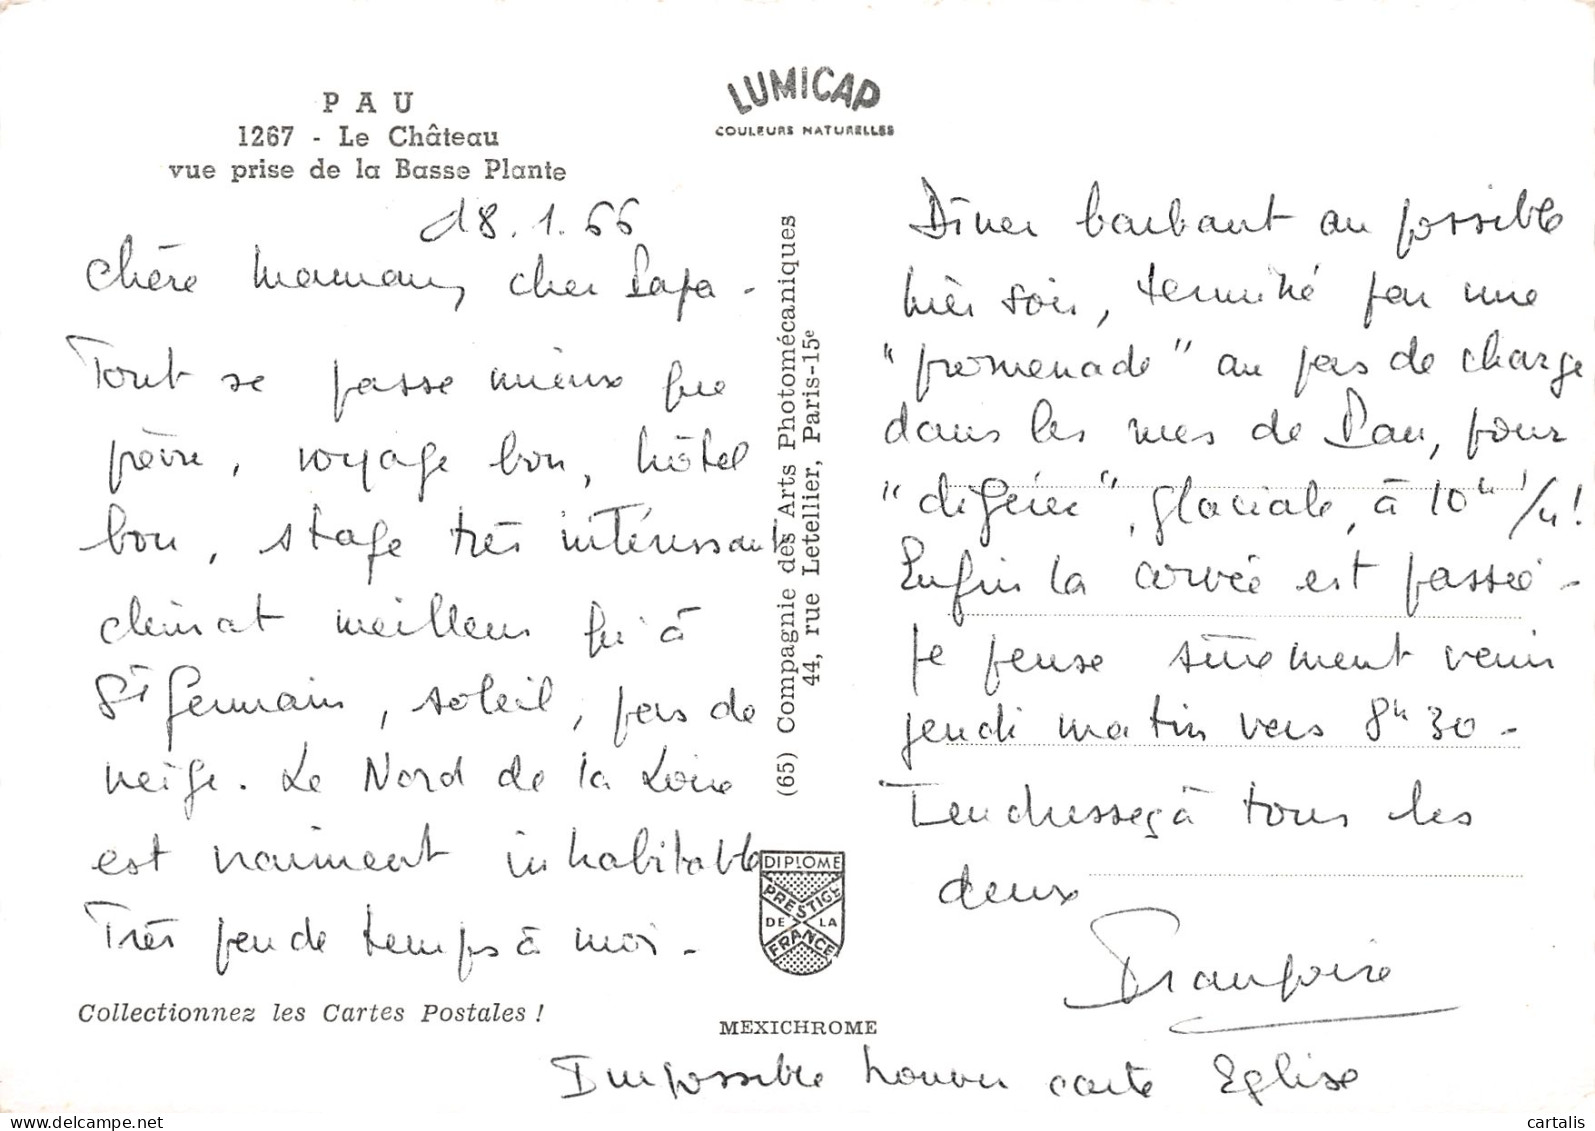 PAU
1267 - Le Château
vue prise de la Basse Plante
LUMICAP
COULEURS NATURELLES
18.1.66
Chère Maman, cher Papa -
Tout se passe mieux que
prévu, voyage bon, hôtel
bon, stage très intéressant
climat meilleur qu'à
St Germain, soleil, pas de
neige. Le Nord de la Loire
est vraiment inhabitable
Très peu de temps à moi -
Collectionnez les Cartes Postales !
(65) Compagnie des Arts Photomécaniques
44, rue Letellier, Paris-15e
DIPLOME
PRESTIGE
DE LA
FRANCE
MEXICHROME
Dîner barbant au possible
hier soir, terminé par une
"promenade" au pas de charge
dans les rues de Pau, pour
"digérer", glaciale, à 10h 1/4!
Enfin la corvée est passée -
Je pense sûrement venir
jeudi matin vers 8h30 -
Tendresses à tous les
deux
Françoise
Impossible trouver carte Eglise
cartalis